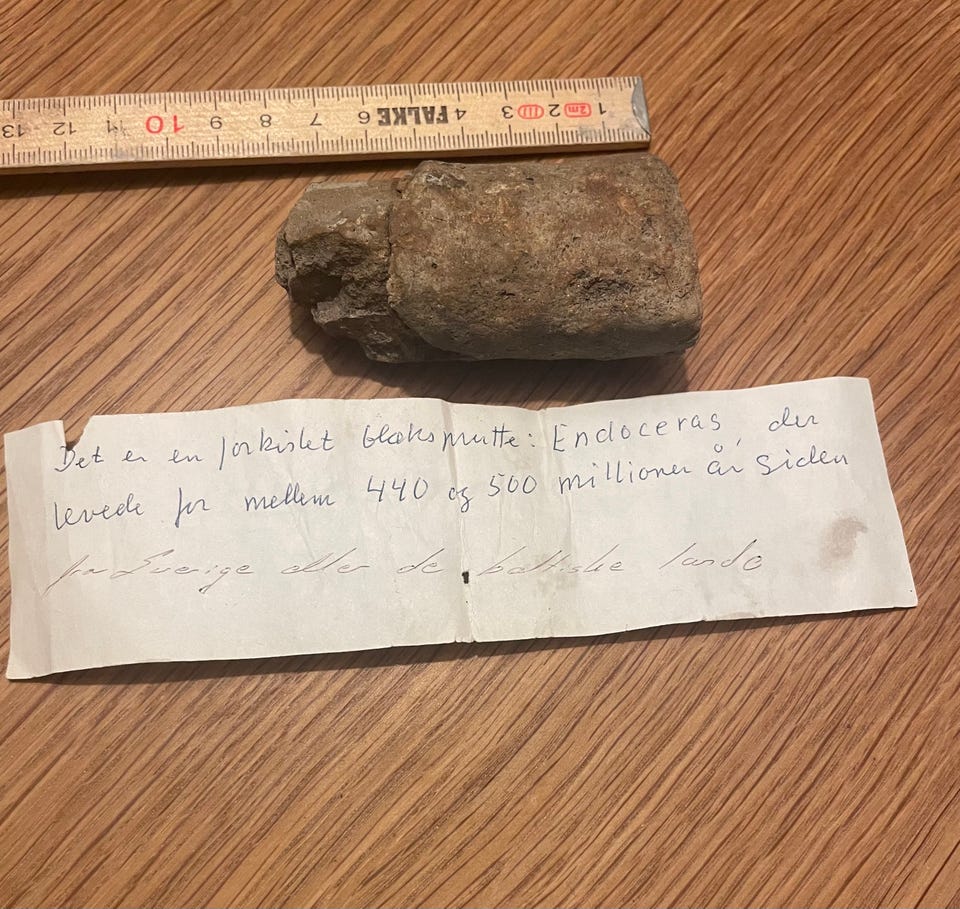 13 12 11 10 9 8 7 6 FALKE 4 3 III 2 2m 1
Det er en forkislet blæksprutte: Endoceras, der
levede for mellem 440 og 500 millioner år siden
fra Sverige eller de baltiske lande